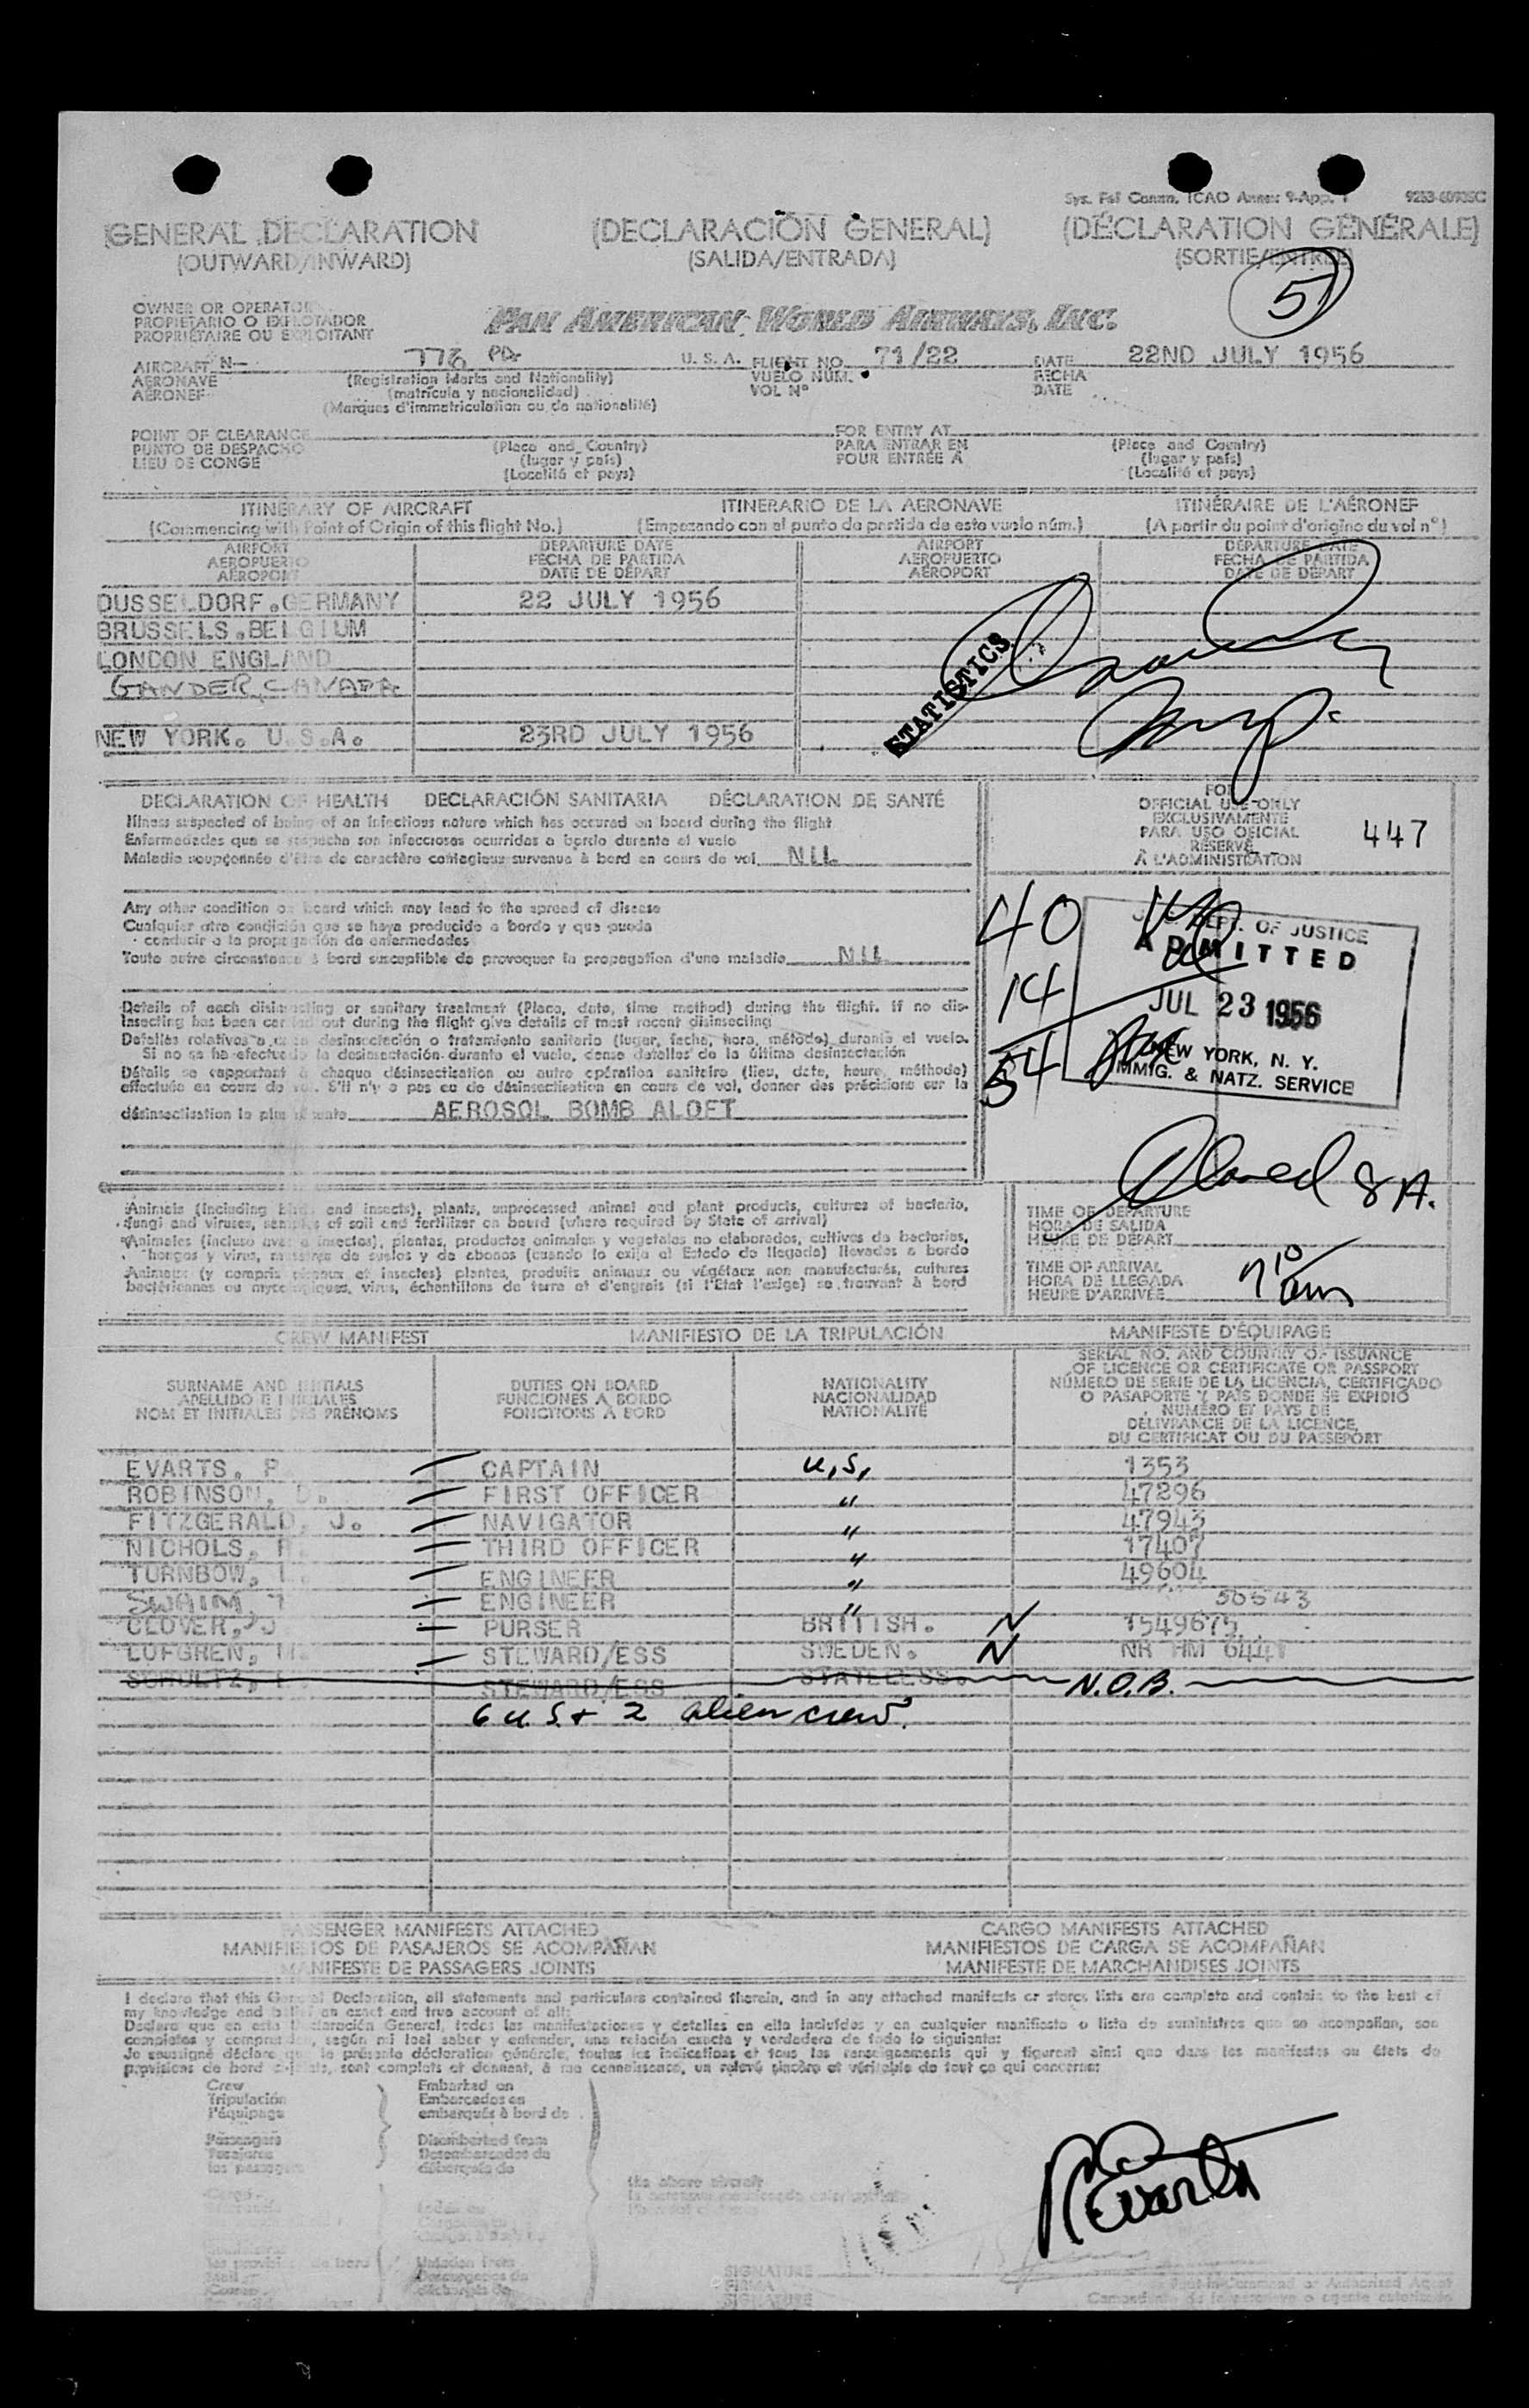 Sys. Fal Comm. ICAO Annex 9-App. 1 9253-60935C
(GENERAL DECLARATION (DECLARACIÓN GENERAL) (DÉCLARATION GÉNÉRALE)
(OUTWARD/INWARD) (SALIDA/ENTRADA) (SORTIE/ENTRÉE)
5
OWNER OR OPERATOR
PROPIETARIO O EXPLOTADOR
PROPRIÉTAIRE OU EXPLOITANT
PAN AMERICAN WORLD AIRWAYS, INC.
AIRCRAFT N- 778 PA U. S. A. FLIGHT NO. 71/22 DATE 22ND JULY 1956
AERONAVE (Registration Marks and Nationality) VUELO NÚM. FECHA
AÉRONEF (matrícula y nacionalidad) VOL Nº DATE
(Marques d'immatriculation ou de nationalité)
POINT OF CLEARANCE FOR ENTRY AT
PUNTO DE DESPACHO (Place and Country) PARA ENTRAR EN (Place and Country)
LIEU DE CONGÉ (lugar y país) POUR ENTRÉE À (lugar y país)
(Localité et pays) (Localité et pays)
ITINERARY OF AIRCRAFT ITINERARIO DE LA AERONAVE ITINÉRAIRE DE L'AÉRONEF
(Commencing with Point of Origin of this flight No.) (Empezando con el punto de partida de este vuelo núm.) (A partir du point d'origine du vol nº)
AIRPORT DEPARTURE DATE AIRPORT DEPARTURE DATE
AEROPUERTO FECHA DE PARTIDA AEROPUERTO FECHA DE PARTIDA
AÉROPORT DATE DE DÉPART AÉROPORT DATE DE DÉPART
DUSSELDORF.GERMANY 22 JULY 1956
BRUSSELS.BELGIUM
LONDON ENGLAND
GANDER, CANADA
STATISTICS
NEW YORK. U.S.A. 23RD JULY 1956
DECLARATION OF HEALTH DECLARACIÓN SANITARIA DÉCLARATION DE SANTÉ
Illness suspected of being of an infectious nature which has occured on board during the flight
Enfermedades que se sospecha son infecciosas ocurridas a bordo durante el vuelo
Maladie soupçonnée d'être de caractère contagieux survenue à bord en cours de vol NIL
FOR
OFFICIAL USE ONLY
EXCLUSIVAMENTE
PARA USO OFICIAL
RÉSERVÉ
À L'ADMINISTRATION
447
Any other condition on board which may lead to the spread of disease
Cualquier otra condición que se haya producido a bordo y que pueda
conducir a la propagación de enfermedades
Toute autre circonstance à bord susceptible de provoquer la propagation d'une maladie NIL
40
14
54
U.S. DEPT. OF JUSTICE
ADMITTED
JUL 23 1956
NEW YORK, N. Y.
IMMIG. & NATZ. SERVICE
Details of each disinsecting or sanitary treatment (Place, date, time method) during the flight. If no dis-
insecting has been carried out during the flight give details of most recent disinsecting
Detalles relativos a cada desinsectación o tratamiento sanitario (lugar, fecha, hora, método) durante el vuelo.
Si no se ha efectuado la desinsectación durante el vuelo, dense detalles de la última desinsectación
Détails se rapportant à chaque désinsectisation ou autre opération sanitaire (lieu, date, heure, méthode)
effectuée en cours de vol. S'il n'y a pas eu de désinsectisation en cours de vol, donner des précisions sur la
désinsectisation la plus récente AEROSOL BOMB ALOFT
Animals (including birds and insects), plants, unprocessed animal and plant products, cultures of bacteria,
fungi and viruses, samples of soil and fertilizer on board (where required by State of arrival)
Animales (incluso aves e insectos), plantas, productos animales y vegetales no elaborados, cultivos de bacterias,
hongos y virus, muestras de suelos y de abonos (cuando lo exija el Estado de llegada) llevados a bordo
Animaux (y compris oiseaux et insectes) plantes, produits animaux ou végétaux non manufacturés, cultures
bactériennes ou mycologiques, virus, échantillons de terre et d'engrais (si l'Etat l'exige) se trouvant à bord
8 A.
TIME OF DEPARTURE
HORA DE SALIDA
HEURE DE DÉPART
TIME OF ARRIVAL
HORA DE LLEGADA
HEURE D'ARRIVÉE
7 10 am
CREW MANIFEST MANIFIESTO DE LA TRIPULACIÓN MANIFESTE D'ÉQUIPAGE
SURNAME AND INITIALS
APELLIDO E INICIALES
NOM ET INITIALES DES PRÉNOMS
DUTIES ON BOARD
FUNCIONES A BORDO
FONCTIONS À BORD
NATIONALITY
NACIONALIDAD
NATIONALITÉ
SERIAL NO. AND COUNTRY OF ISSUANCE
OF LICENCE OR CERTIFICATE OR PASSPORT
NÚMERO DE SERIE DE LA LICENCIA, CERTIFICADO
O PASAPORTE Y PAÍS DONDE SE EXPIDIÓ
NUMÉRO ET PAYS DE
DÉLIVRANCE DE LA LICENCE,
DU CERTIFICAT OU DU PASSEPORT
EVARTS, P CAPTAIN U.S. 1353
ROBINSON, D. FIRST OFFICER " 47296
FITZGERALD, J. NAVIGATOR " 47943
NICHOLS, THIRD OFFICER " 17407
TURNBOW, ENGINEER " 49604
SWAIM, ENGINEER " 50543
CLOVER, J PURSER BRITISH. N 1549675
LOFGREN, M. STEWARD/ESS SWEDEN. N NR HM 6441
SCHULTZ, STEWARD/ESS STATELESS. N.O.B.
6 U.S. + 2 alien crew.
PASSENGER MANIFESTS ATTACHED CARGO MANIFESTS ATTACHED
MANIFIESTOS DE PASAJEROS SE ACOMPAÑAN MANIFIESTOS DE CARGA SE ACOMPAÑAN
MANIFESTE DE PASSAGERS JOINTS MANIFESTE DE MARCHANDISES JOINTS
I declare that this General Declaration, all statements and particulars contained therein, and in any attached manifests or stores lists are complete and contain to the best of
my knowledge and belief an exact and true account of all:
Declaro que en esta Declaración General, todas las manifestaciones y detalles en ella incluídos y en cualquier manifiesto o lista de suministros que se acompañan, son
completos y comprenden, según mi leal saber y entender, una relación exacta y verdadera de todo lo siguiente:
Je soussigné déclare que la présente déclaration générale, toutes les indications et tous les renseignements qui y figurent ainsi que dans les manifestes ou états de
provisions de bord ci-joints, sont complets et donnent, à ma connaissance, un relevé sincère et véritable de tout ce qui concerne:
Crew
Tripulación
l'équipage
Embarked on
Embarcados en
embarqués à bord de
Passengers
Pasajeros
les passagers
Disembarked from
Desembarcados de
débarqués de
the above aircraft
SIGNATURE
FIRMA
SIGNATURE
Evarts